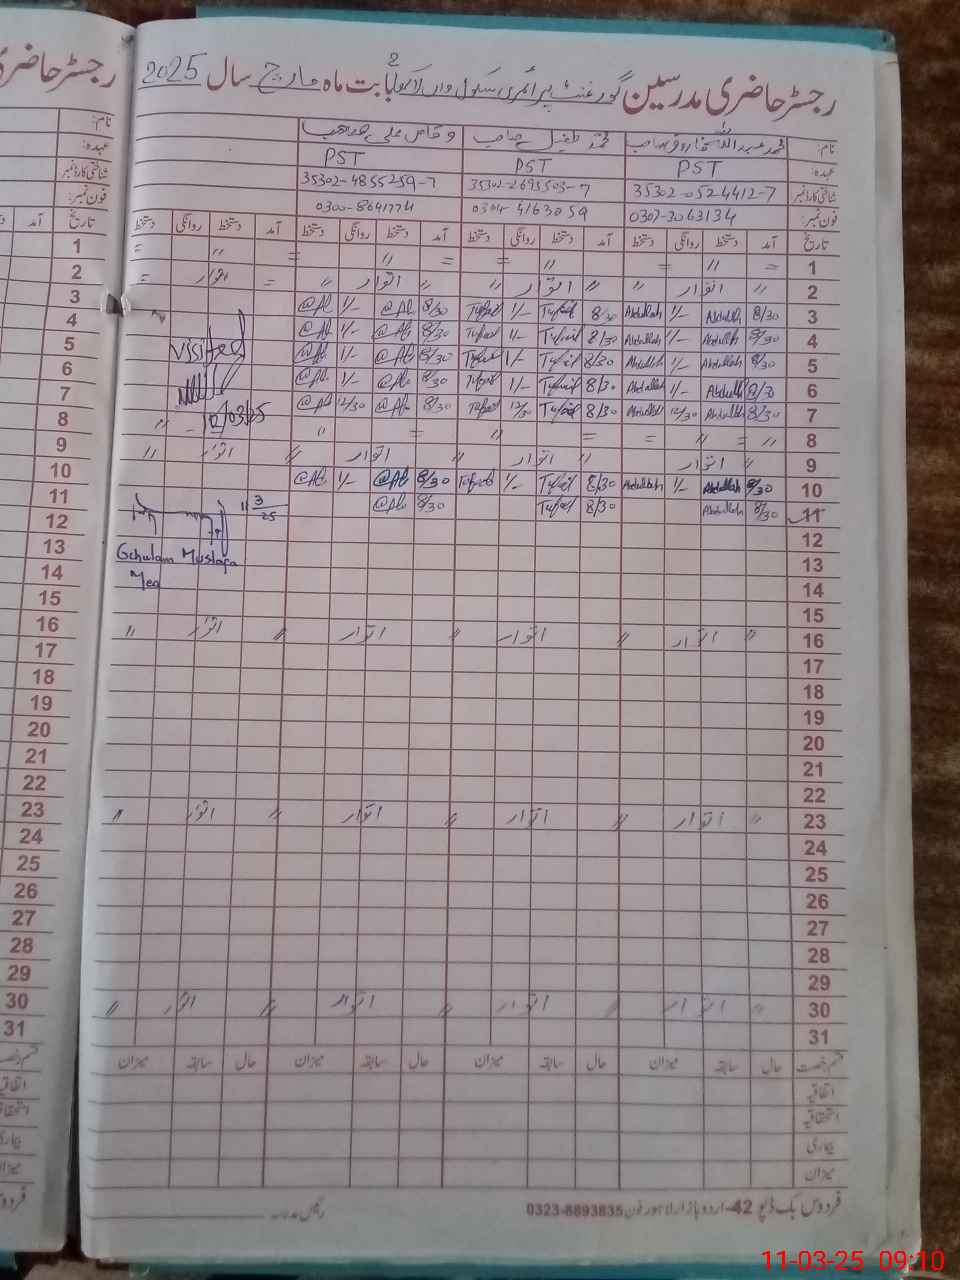 رجسٹر حاضری مدرسین گورنمنٹ پرائمری سکول واں بابت ماہ مارچ سال 2025
نام: محمد عبداللہ فاروق صاحب محمد طفیل صاحب وقاص علی صاحب
عہدہ: PST PST PST
شناختی کارڈ نمبر: 35302-0524412-7 35302-2693503-7 35302-4855259-7
فون نمبر: 0307-3063134 0304-4163059 0300-8641774
تاریخ آمد دستخط روانگی دستخط آمد دستخط روانگی دستخط آمد دستخط روانگی دستخط آمد دستخط روانگی دستخط
1 = 〃 = = 〃 = = 〃 = 〃 =
2 〃 اتوار 〃 اتوار 〃 〃 اتوار 〃 = اتوار =
3 8/30 Abdullah 1/- Abdullah 8/30 Tufail 1/- Tufail 8/30 @Ali 1/- @Ali
4 8/30 Abdullah 1/- Abdullah 8/30 Tufail 1/- Tufail 8/30 @Ali 1/- @Ali
5 8/30 Abdullah 1/- Abdullah 8/30 Tufail 1/- Tufail 8/30 @Ali 1/- @Ali
6 8/30 Abdullah 1/- Abdullah 8/30 Tufail 1/- Tufail 8/30 @Ali 1/- @Ali
7 8/30 Abdullah 12/30 Abdullah 8/30 Tufail 12/30 Tufail 8/30 @Ali 12/30 @Ali
Visited
10/03/25
8 〃 = 〃 = = 〃 = 〃 〃
9 〃 اتوار 〃 اتوار 〃 اتوار 〃 اتوار 〃
10 8/30 Abdullah 1/- Abdullah 8/30 Tufail 1/- Tufail 8/30 @Ali 1/- @Ali
11 8/30 Abdullah 8/30 Tufail 8/30 @Ali
11 3/25
Ghulam Mustafa
Mea
12
13
14
15
16 〃 اتوار 〃 اتوار 〃 اتوار 〃 اتوار 〃
17
18
19
20
21
22
23 〃 اتوار 〃 اتوار 〃 اتوار 〃 اتوار 〃
24
25
26
27
28
29
30 〃 اتوار 〃 اتوار 〃 اتوار 〃 اتوار 〃
31
قسم رخصت حال سابقہ میزان حال سابقہ میزان حال سابقہ میزان حال سابقہ میزان
اتفاقیہ
استحقاقیہ
بیماری
میزان
فردوس بک ڈپو 42-اردو بازار لاہور فون 0323-8893835
رجسٹر حاضری
نام:
عہدہ:
شناختی کارڈ نمبر:
فون نمبر:
تاریخ آمد
1
2
3
4
5
6
7
8
9
10
11
12
13
14
15
16
17
18
19
20
21
22
23
24
25
26
27
28
29
30
31
11-03-25 09:10